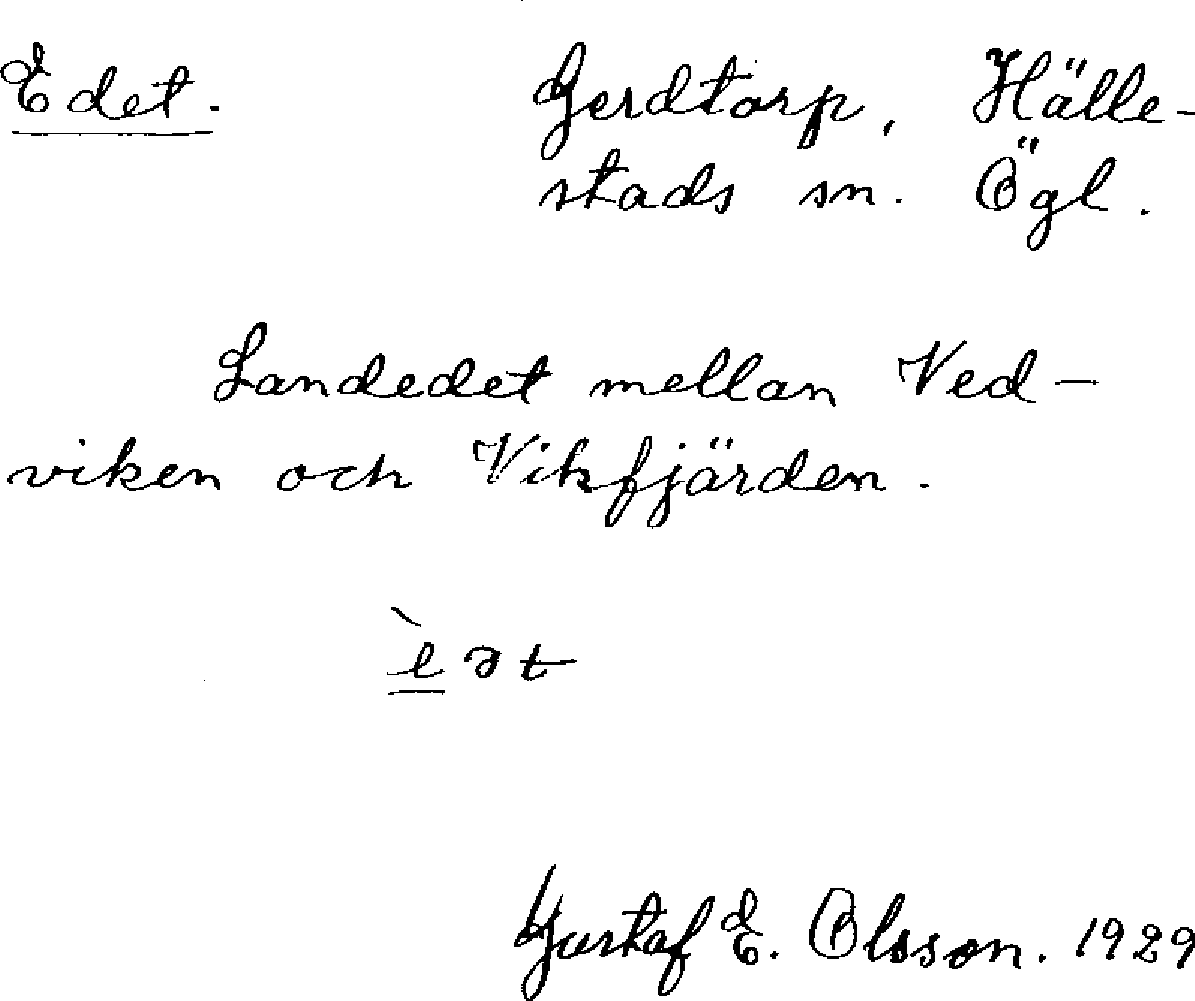 Edet. Gerdtorp, Hälle-
stads sn. Ögl.
Landedet mellan Ved-
viken och Vikfjärden.
è̳ət
Gustaf E. Olsson. 1929